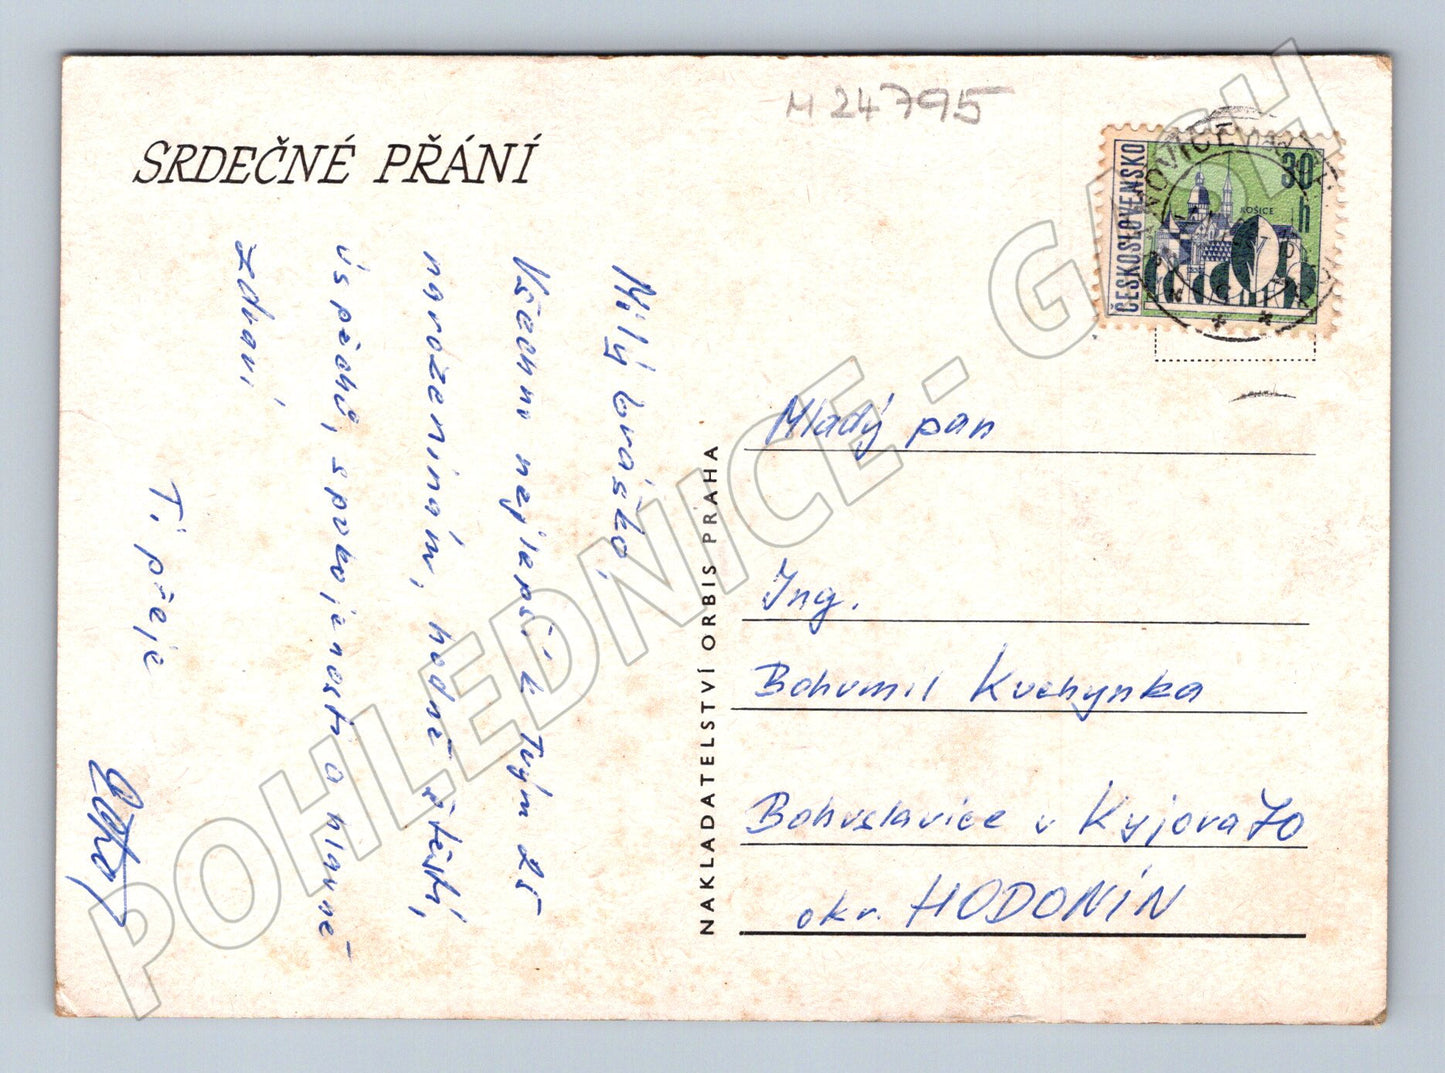 M 24795
SRDEČNÉ PŘÁNÍ
ČESKOSLOVENSKO
30 h
KOŠICE
Milý bráško,
Všechno nejlepší k Tvým 25
narozeninám, hodně štěstí,
úspěchů, spokojenosti a hlavně
zdraví
Ti přeje
NAKLADATELSTVÍ ORBIS PRAHA
Mladý pan
Ing.
Bohumil Kuchynka
Bohuslavice u Kyjova 70
okr. HODONÍN
POHLEDNICE - GASH